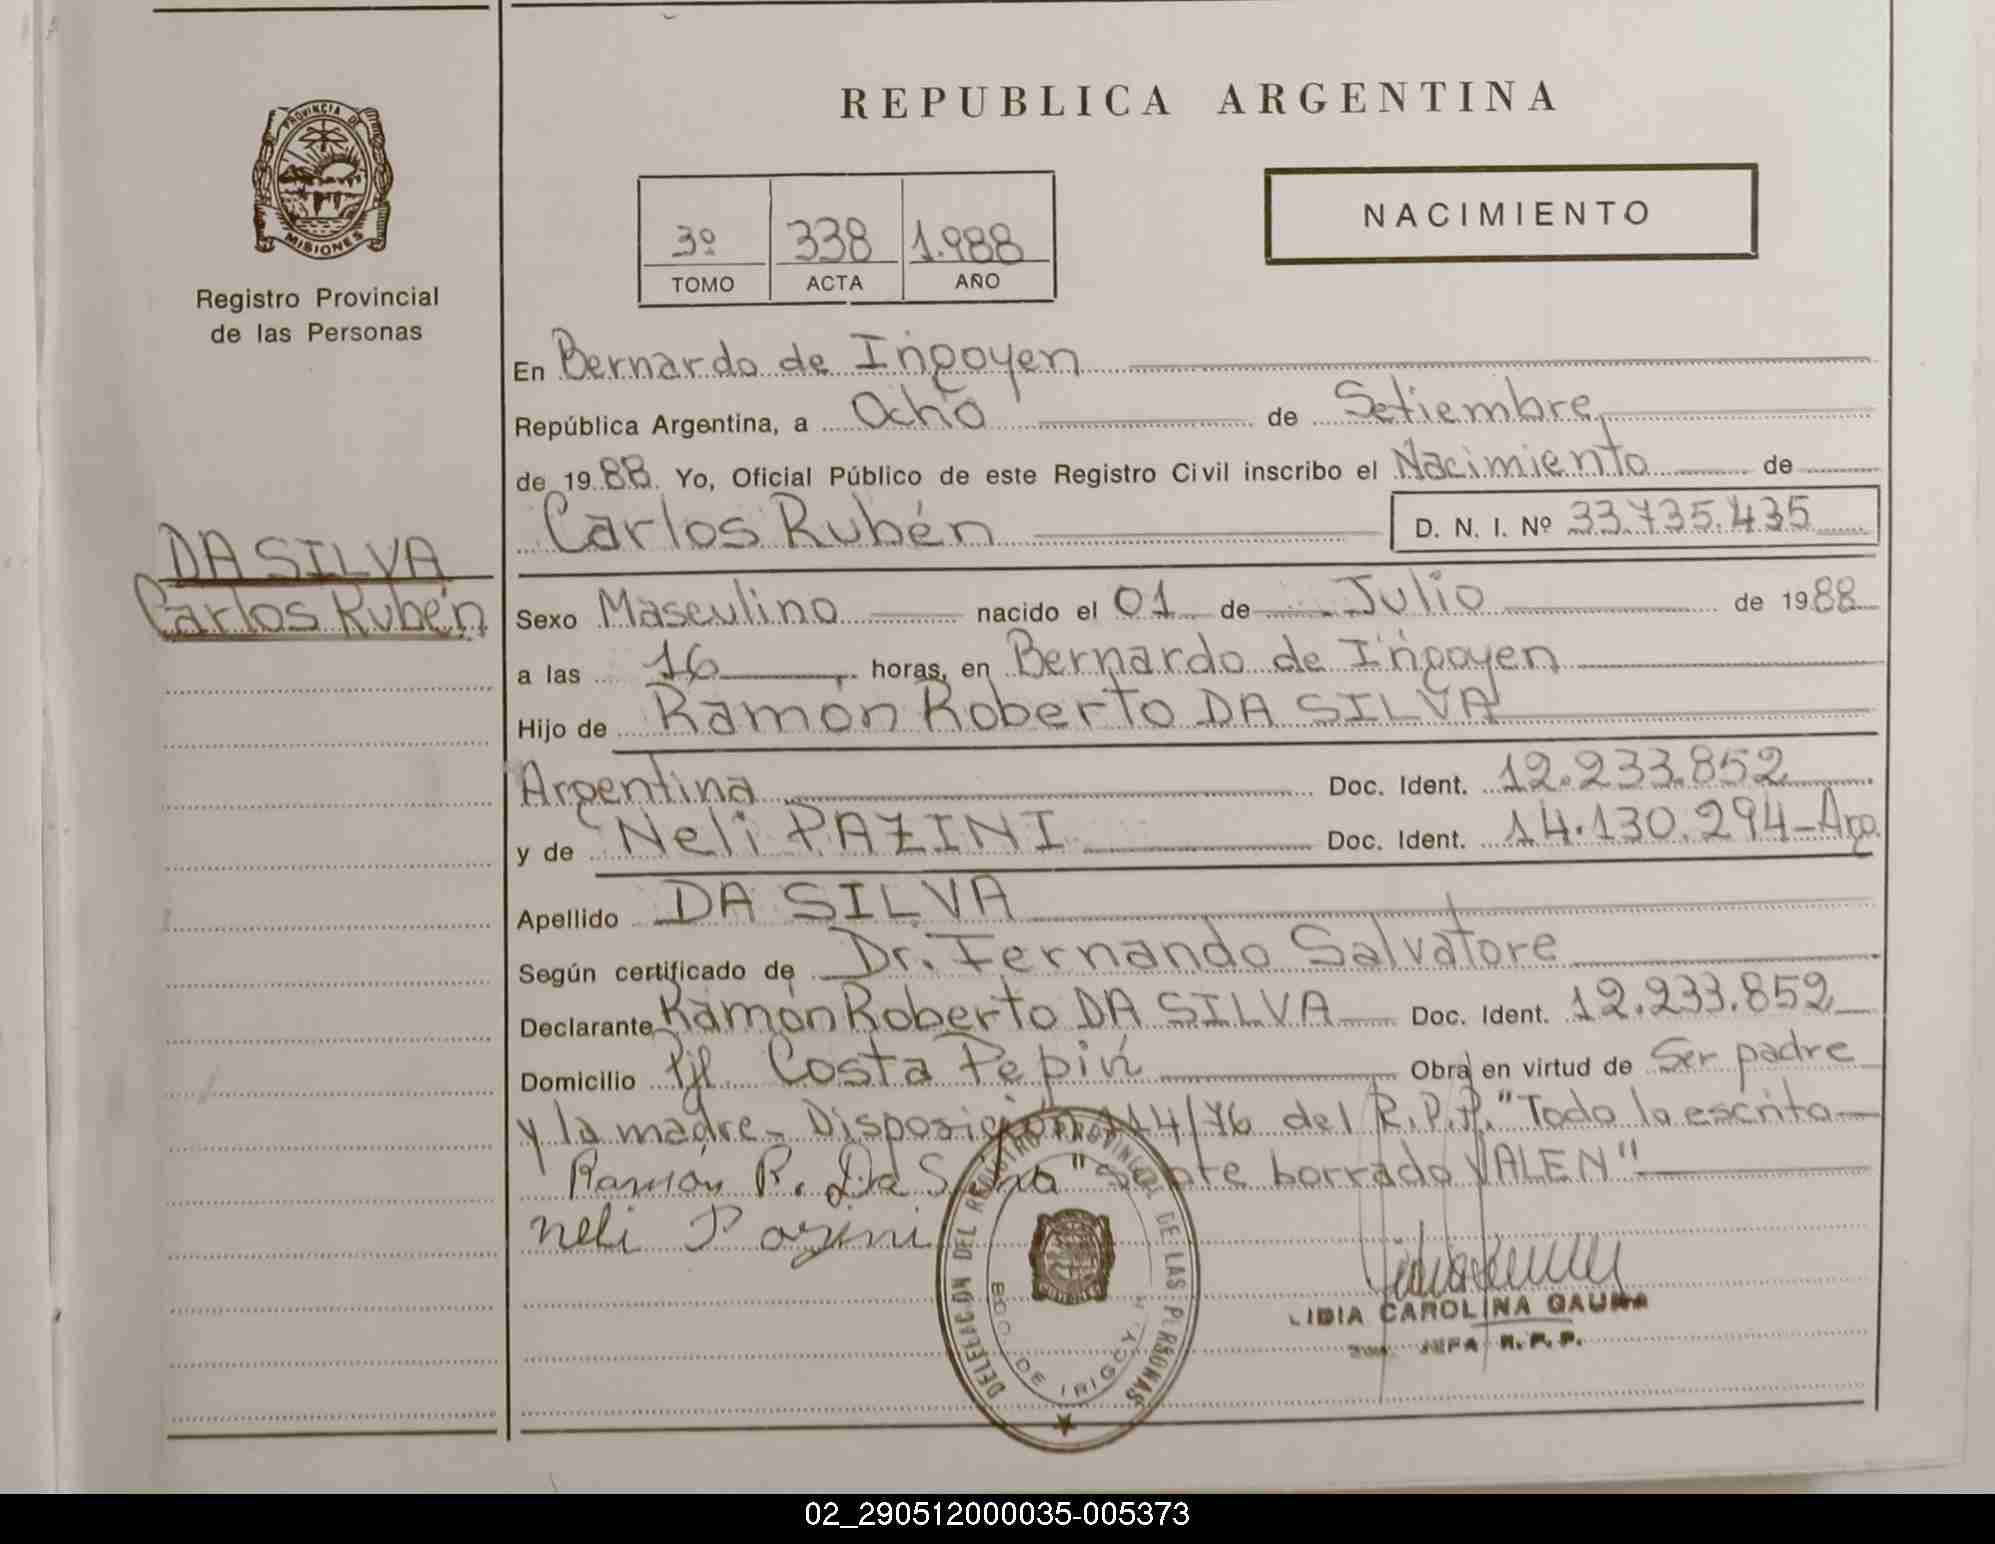 PROVINCIA DE
MISIONES
Registro Provincial
de las Personas
DA SILVA
Carlos Rubén
REPUBLICA ARGENTINA
3º 338 1.988
TOMO ACTA AÑO
NACIMIENTO
En Bernardo de Irigoyen
República Argentina, a Ocho de Setiembre
de 1988 Yo, Oficial Público de este Registro Civil inscribo el Nacimiento de
Carlos Rubén D. N. I. Nº 33.735.435
Sexo Masculino nacido el 01 de Julio de 1988
a las 16 horas, en Bernardo de Irigoyen
Hijo de Ramón Roberto DA SILVA
Argentina Doc. Ident. 12.233.852
y de Neli PAZINI Doc. Ident. 14.130.294-Arg.
Apellido DA SILVA
Según certificado de Dr. Fernando Salvatore
Declarante Ramón Roberto DA SILVA Doc. Ident. 12.233.852
Domicilio Pje Costa Pepin Obra en virtud de Ser padre
y la madre- Disposición 114/76 del R.P.P. "Todo lo escrito
Ramón R. Da Silva "sobre borrado VALEN"
Neli Pazini
DELEGACION DEL REGISTRO PROVINCIAL DE LAS PERSONAS
BDO. DE IRIGOYEN
LIDIA CAROLINA GAUNA
JEFA R.P.P.
02_290512000035-005373